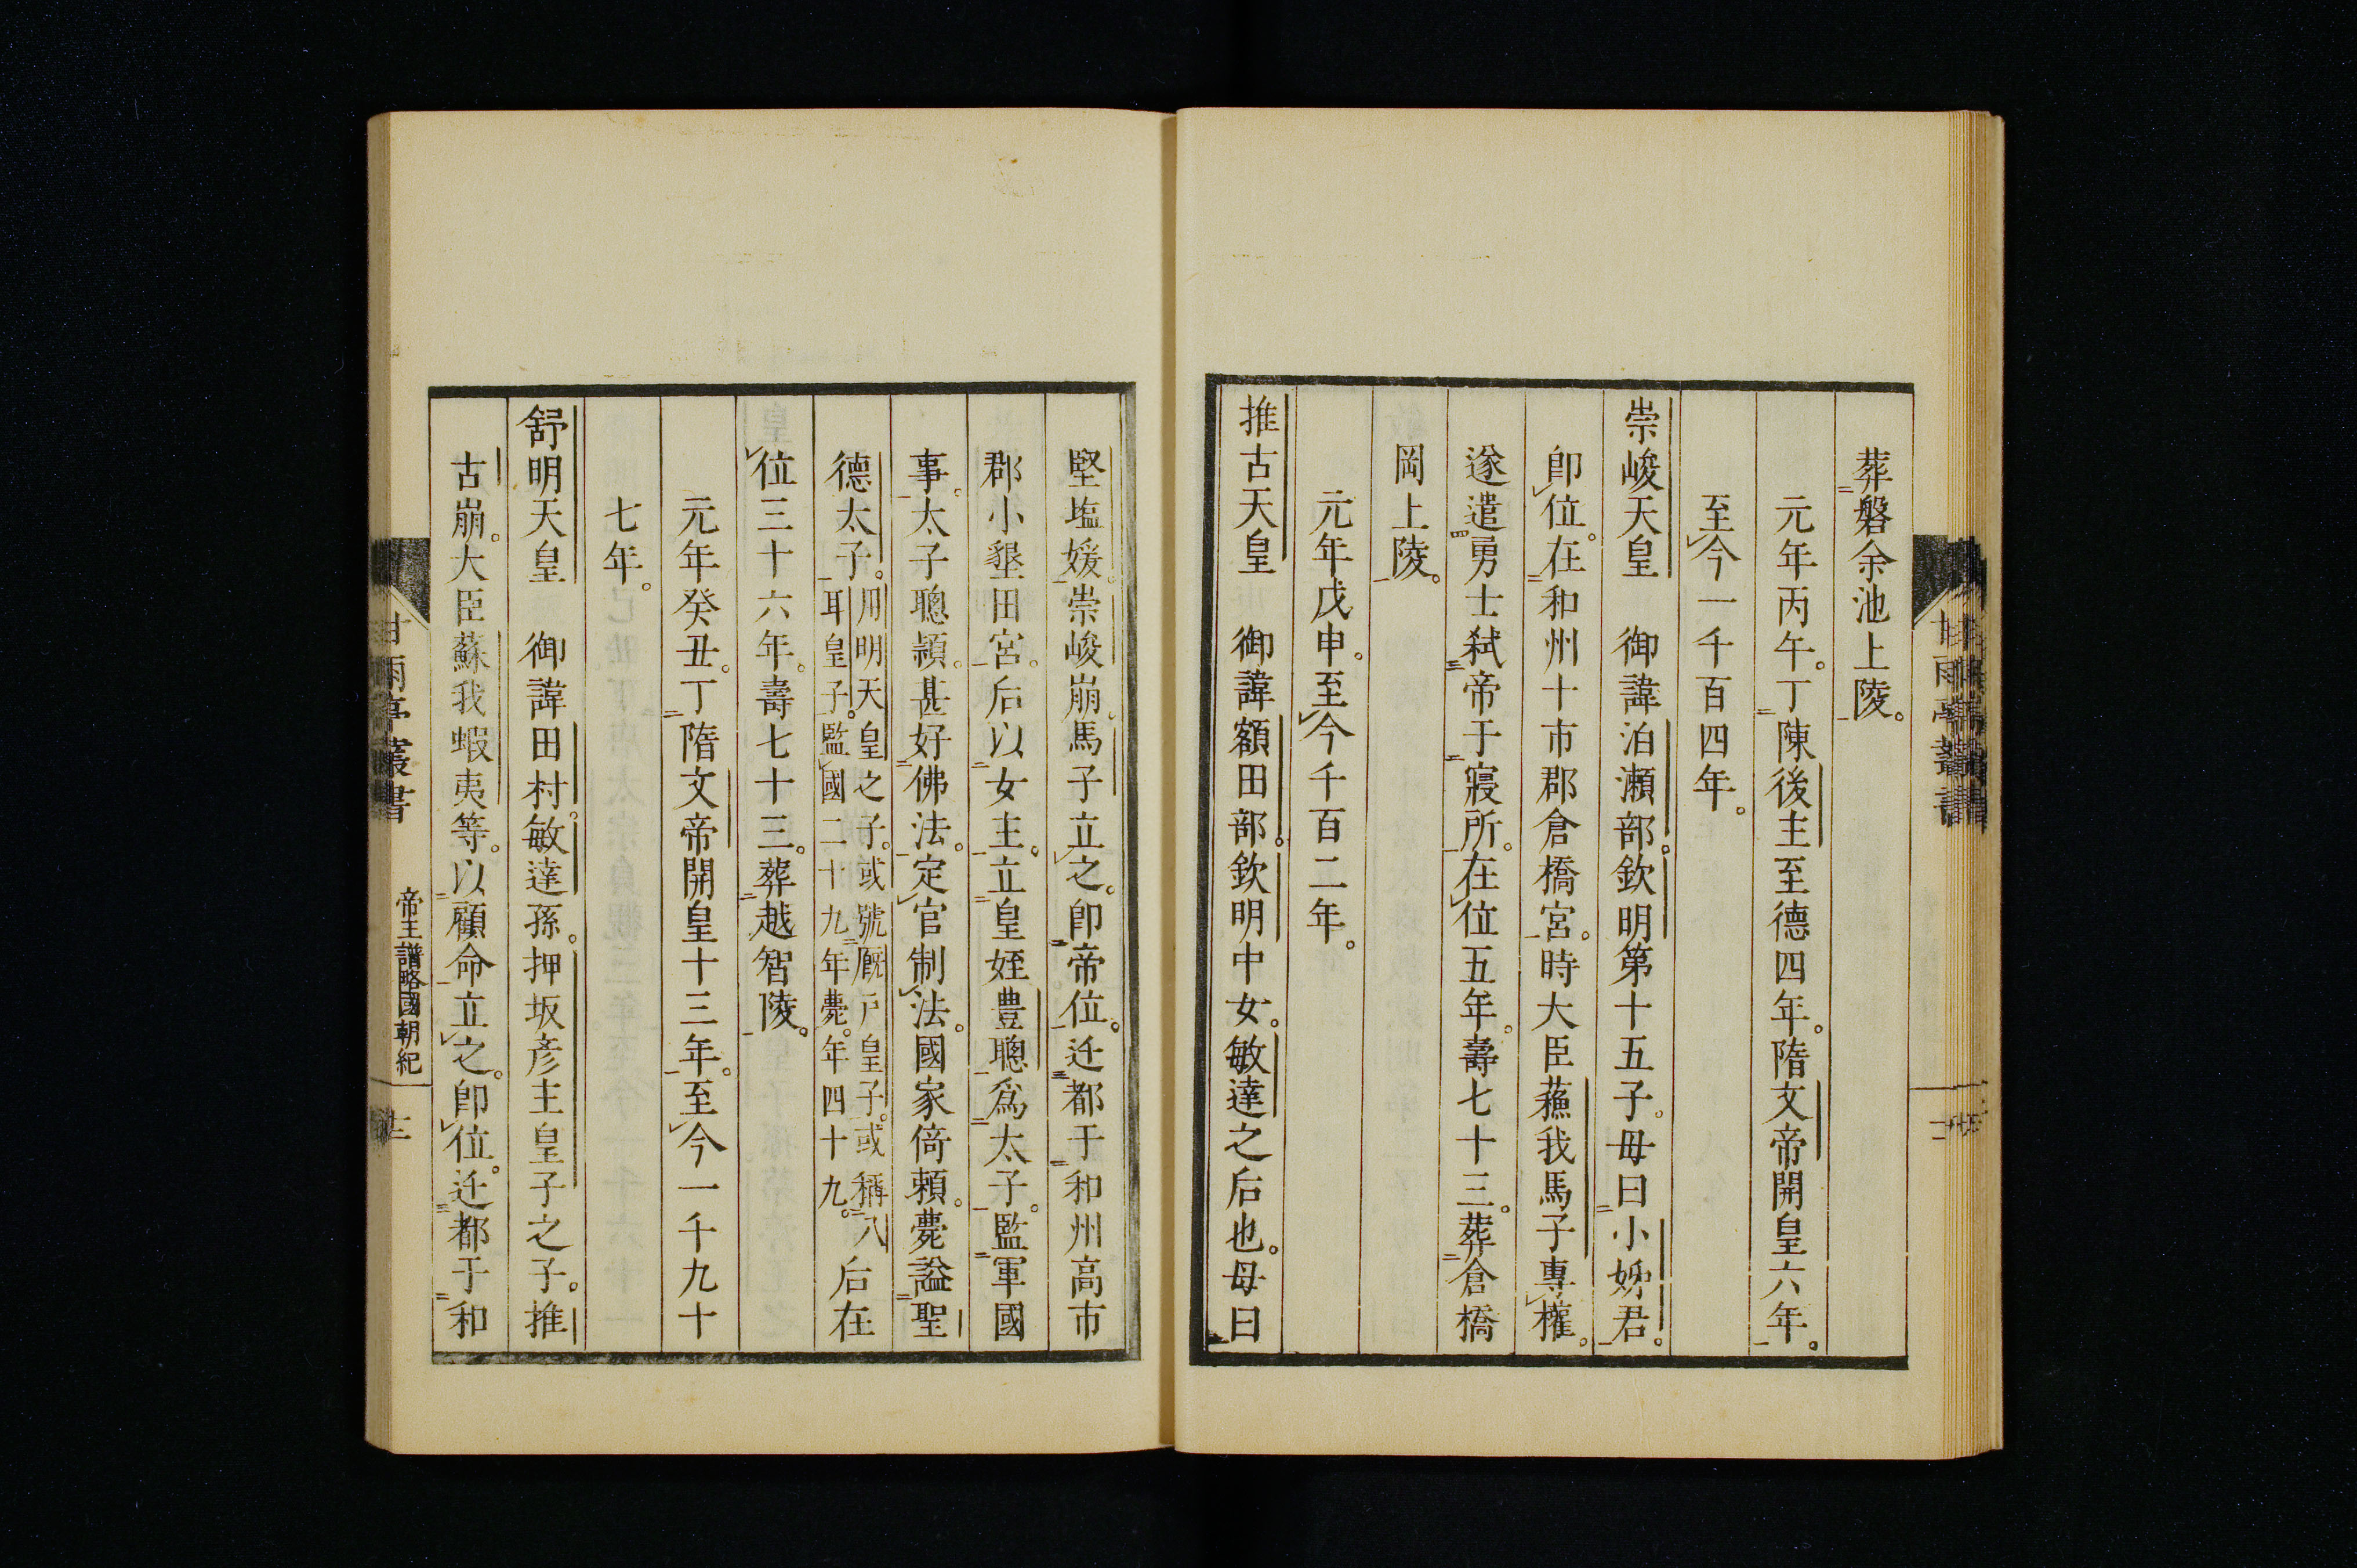 葬磐余池上陵。
元年丙午。丁陳後主至德四年。隋文帝開皇六年。
至今一千百四年。
崇峻天皇　御諱泊瀬部。欽明第十五子。母曰小姊君。
卽位。在和州十市郡倉橋宮。時大臣蘓我馬子專權。
遂遣勇士弑帝于寢所。在位五年。壽七十三。葬倉橋
岡上陵。
元年戊申。至今千百二年。
推古天皇　御諱額田部。欽明中女。敏達之后也。母曰
堅塩媛。崇峻崩。馬子立之。卽帝位。迁都于和州高市
郡小墾田宮。后以女主。立皇姪豊聰爲太子。監軍國
事。太子聰頴。甚好佛法。定官制法。國家倚頼。薨謚聖
德太子。用明天皇之子。或號厩戸皇子。或稱八
耳皇子。監國二十九年薨。年四十九。后在
位三十六年。壽七十三。葬越智陵。
元年癸丑。丁隋文帝開皇十三年。至今一千九十
七年。
舒明天皇　御諱田村。敏達孫。押坂彦主皇子之子。推
古崩。大臣蘇我蝦夷等。以顧命立之。卽位。迁都于和
甘雨亭叢書　帝王譜略國朝紀